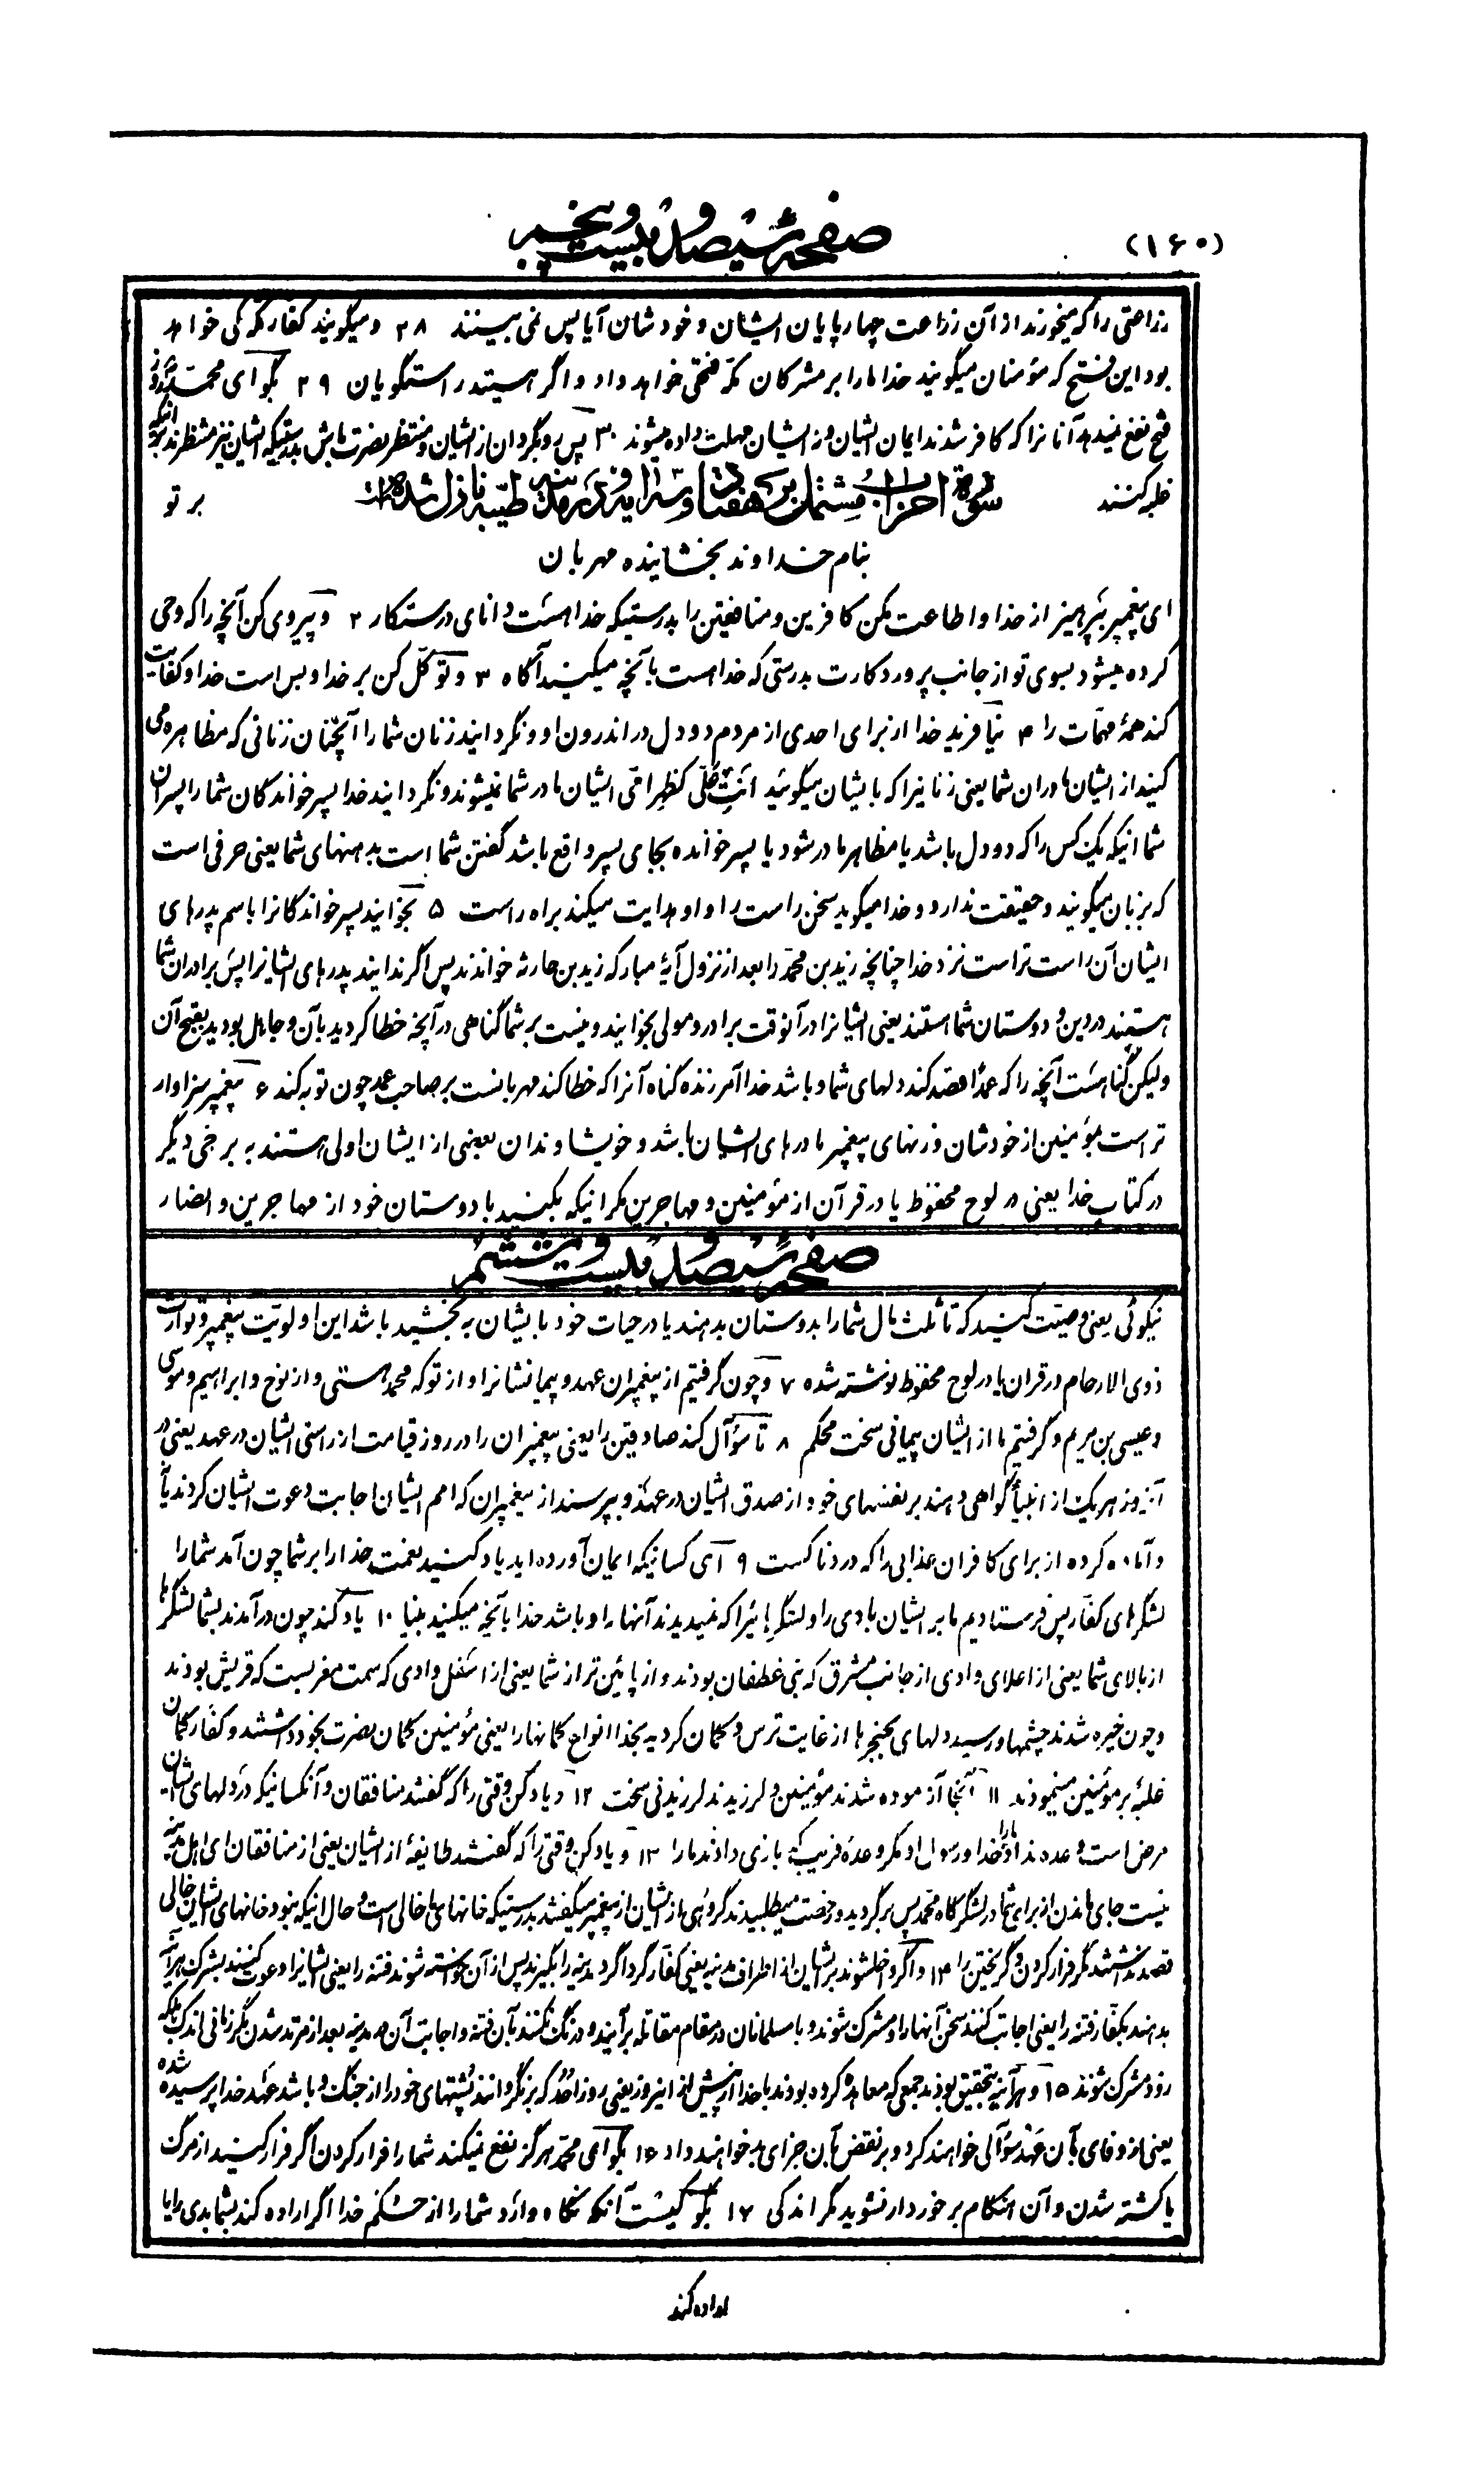 (۱۶۰)
صفحه سیصد و بیست و پنجم
زراعتی را که میخورند از آن زراعت چهارپایان ایشان و خودشان آیا پس نمی بینند ۲۸ و میگویند کفار مکه کی خواهد
بود این فتح که مؤمنان میگویند خدا ما را بر مشرکان مکه فتحی خواهد داد و اگر هستید راستگویان ۲۹ بگو ای محمد روز
فتح نفع نمیدهد آنانرا که کافر شدند ایمان ایشان و نه ایشان مهلت داده میشوند ۳۰ پس روبگردان از ایشان و منتظر نصرت باش بدرستیکه ایشان نیز منتظرند بر تو اینکه
غلبه کنند
سوره احزاب مشتمل بر هفتاد و سه آیه و در مدینه طیبه نازل شده است
بنام خداوند بخشاینده مهربان
ای پیغمبر بپرهیز از خدا و اطاعت مکن کافرین و منافقین را بدرستیکه خدا هست دانای درستکار ۲ و پیروی کن آنچه را که وحی
کرده میشود بسوی تو از جانب پروردکارت بدرستی که خدا هست بآنچه میکنید آگاه ۳ و توکّل کن بر خدا و بس است خدا و کفایت
کند همهٔ مهمّات را ۴ نیافرید خدا از برای احدی از مردم دو دل در اندرون او و نگردانید زنان شما را آنچنان زنانی که مظاهره می
کنید از ایشان مادران شما یعنی زنانیرا که بایشان میگوئید انتِ عَلَیّ کظهر امّی ایشان مادر شما نمیشوند و نگردانید خدا پسرخواندکان شما را پسران
شما اینکه یک کس را که دو دل باشد یا مظاهر مادر شود یا پسر خوانده بجای پسر واقع باشد گفتن شما است بدهنهای شما یعنی حرفی است
که بزبان میگوئید و حقیقت ندارد و خدا میگوید سخن راست را و او هدایت میکند براه راست ۵ بخوانید پسرخواندکانرا باسم پدرهای
ایشان آن راست تر است نزد خدا چنانچه زید بن محمّد را بعد از نزول آیهٔ مبارکه زید بن حارثه خواندند پس اگر ندانید پدرهای ایشانرا پس برادران شما
هستند در دین و دوستان شما هستند یعنی ایشانرا در آنوقت برادر و مولی بخوانید و نیست بر شما گناهی در آنچه خطا کردید بآن و جاهل بودید بقبح آن
ولیکن گناهست آنچه را که عمداً قصد کند دلهای شما و باشد خدا آمرزنده گناه آنرا که خطا کند مهربانست بر صاحب عمد چون توبه کند ۶ پیغمبر سزاوار
تر است بمؤمنین از خودشان و زنهای پیغمبر مادرهای ایشان باشد و خویشاوندان بعضی از ایشان اولی هستند به برخی دیگر
در کتاب خدا یعنی در لوح محفوظ یا در قرآن از مؤمنین و مهاجرین مگر اینکه بکنید با دوستان خود از مهاجرین و انصار
صفحه سیصد و بیست و ششم
نیکوئی یعنی وصیّت کنید که تا ثلث مال شما را بدوستان بدهند یا در حیات خود بایشان به بخشید باشد این اولویّت پیغمبر و توارث
ذوی الارحام در قرآن یا در لوح محفوظ نوشته شده ۷ و چون گرفتیم از پیغمبران عهد و پیمانشانرا و از تو که محمد هستی و از نوح و ابراهیم و موسی
و عیسی بن مریم و گرفتیم ما از ایشان پیمانی سخت محکم ۸ تا سؤآل کند صادقین را یعنی پیغمبران را در روز قیامت از راستی ایشان در عهد یعنی در
آنروز هر یک از انبیأ گواهی دهند بر نفسهای خود از صدق ایشان در عهد و بپرسند از پیغمبران که امم ایشان اجابت دعوت ایشان کردند یا نه
و آماده کرده از برای کافران عذابی را که دردناکست ۹ ای کسانیکه ایمان آورده اید یاد کنید نعمت خدا را بر شما چون آمد شما را
لشگرهای کفّار پس فرستادیم ما بر ایشان بادی را و لشگرهائیرا که نمیدیدند آنها را و باشد خدا بآنچه میکنید بینا ۱۰ یاد کنید چون درآمدند بشما لشگرها
از بالای شما یعنی از اعلای وادی از جانب مشرق که بنی غطفان بودند و از پائین تر از شما یعنی از اسفل وادی که سمت مغربست که قریش بودند
و چون خیره شدند چشمها و رسید دلهای بحنجرها از غایت ترس و گمان کردید بخدا انواع گمانها را یعنی مؤمنین گمان نصرت بخود داشتند و کفّار گمان
غلبه بر مؤمنین مینمودند ۱۱ آنجا آزموده شدند مؤمنین و لرزیدند لرزیدنی سخت ۱۲ و یاد کن وقتی را که گفتند منافقان و آنکسانیکه در دلهای ایشان
مرض است وعده نداد ما را خدا و رسول او مگر وعدهٔ فریب که بازی دادند ما را ۱۳ و یاد کن وقتی را که گفتند طایفهٔ از ایشان یعنی از منافقان ای اهل مدینه
نیست جای ماندن از برای شما در لشگرگاه محمد پس برگردید و رخصت میطلبیدند گروهی از ایشان از پیغمبر میگفتند بدرستیکه خانهای ما خالی است و حال اینکه نبود خانهای ایشان خالی
قصد نداشتند مگر فرار کردن و گریختن را ۱۴ و اگر داخلشوند بر ایشان از اطراف مدینه یعنی کفّار گرداگرد مدینه را بگیرند پس از آن خواسته شوند فتنه را یعنی ایشانرا دعوت کنند بشرک هرآینه
بدهند بکفّار فتنه را یعنی اجابت کنند سخن آنها را و مشرک شوند و با مسلمانان در مقام مقاتله برآیند و درنگ نکنند بآن فتنه و اجابت آن در مدینه بعد از مرتد شدن مگر زمانی اندک بلکه
زود مشرک شوند ۱۵ و هرآینه بتحقیق بودند جمعی که معاهده کرده بودند با خدا از پیش از اینروز یعنی روز احُد که برنگردانند پشتهای خود را از جنگ و باشد عهد خدا پرسیده شده
یعنی از وفای بآن عهد سؤآل خواهند کرد و بر نقض بآن جزای بد خواهند داد ۱۶ بگو ای محمّد هرگز نفع نمیکند شما را فرار کردن اگر فرار کنید از مرگ
یا کشته شدن و آن هنگام برخوردار نشوید مگر اندکی ۱۷ بگو کیست آنکه نگاه دارد شما را از حکم خدا اگر اراده کند بشما بدی را یا
اراده کند